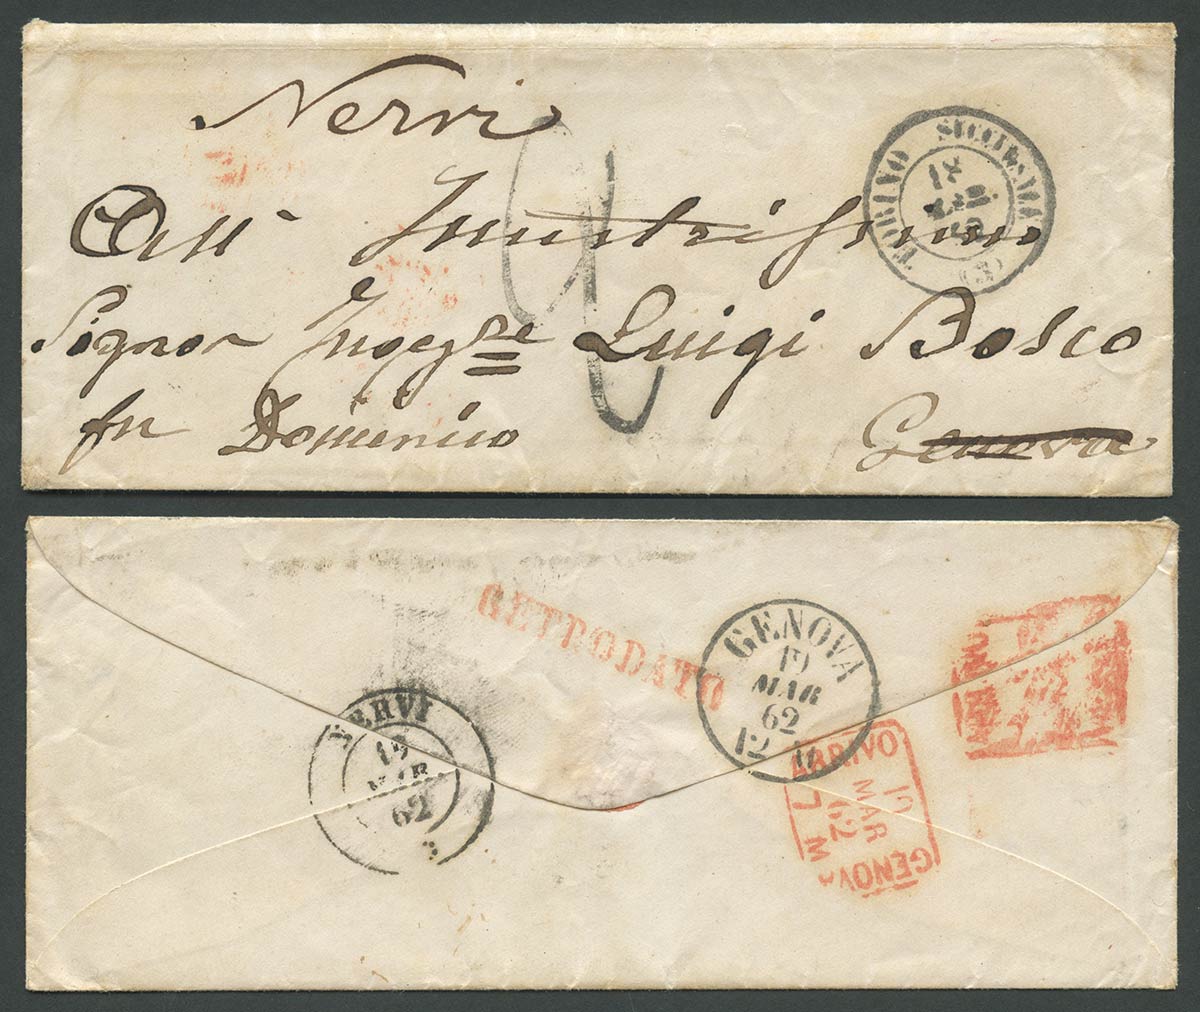 Nervi
All' Illustrissimo
Signor Ingegre Luigi Bosco
fu Domenico
Genova
TORINO SUCCURSALE
18
MAR
62
(3)
RETRODATO
GENOVA
19
MAR
62
12 M
NERVI
19
MAR
62
ARRIVO
19
MAR
62
7 M
GENOVA